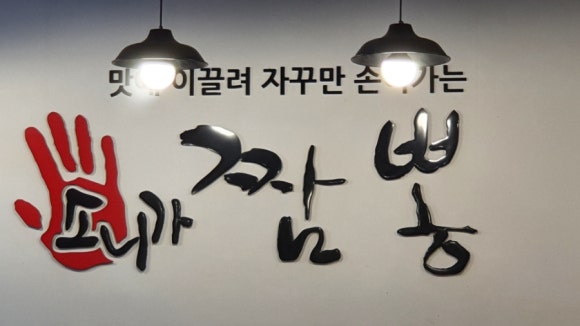 맛에 이끌려 자꾸만 손이가는
소니가 짬뽕